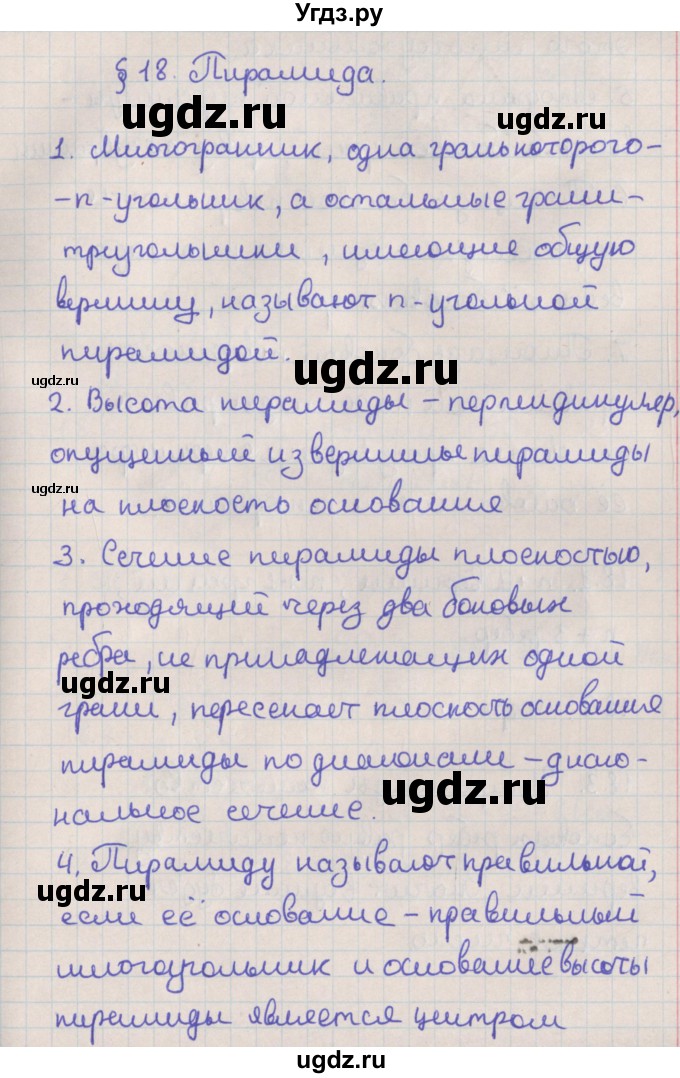 Угдз.ру
§ 18. Пирамида.
ugdz.ru
1. Многогранник, одна грань которого-
-n-угольник, а остальные грани-
ugdz.ru
треугольники, имеющие общую
вершину, называют n-угольной
пирамидой.
ugdz.ru
ugdz.ru
2. Высота пирамиды - перпендикуляр,
опущенный из вершины пирамиды
ugdz.ru
на плоскость основания
3. Сечение пирамиды плоскостью,
проходящей через два боковых
ребра, не принадлежащих одной
ugdz.ru
грани, пересекает плоскость основания
пирамиды по диагонали - диаго-
ugdz.ru
нальное сечение.
4. Пирамиду называют правильной,
ugdz.ru
если её основание - правильный
многоугольник и основание высоты
пирамиды является центром
ugdz.ru